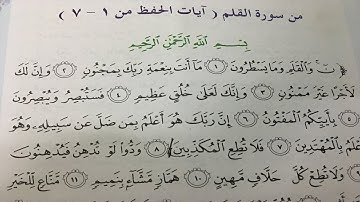 من سورة القلم ( آيات الحفظ من ١ - ٧ )
بِسْمِ اللَّهِ الرَّحْمَٰنِ الرَّحِيمِ
نٓ وَالْقَلَمِ وَمَا يَسْطُرُونَ ١ مَا أَنتَ بِنِعْمَةِ رَبِّكَ بِمَجْنُونٍ ٢ وَإِنَّ لَكَ
لَأَجْرًا غَيْرَ مَمْنُونٍ ٣ وَإِنَّكَ لَعَلَىٰ خُلُقٍ عَظِيمٍ ٤ فَسَتُبْصِرُ وَيُبْصِرُونَ
٥ بِأَييِّكُمُ الْمَفْتُونُ ٦ إِنَّ رَبَّكَ هُوَ أَعْلَمُ بِمَن ضَلَّ عَن سَبِيلِهِ وَهُوَ
أَعْلَمُ بِالْمُهْتَدِينَ ٧ فَلَا تُطِعِ الْمُكَذِّبِينَ ٨ وَدُّوا لَوْ تُدْهِنُ فَيُدْهِنُونَ
٩ وَلَا تُطِعْ كُلَّ حَلَّافٍ مَّهِينٍ ١٠ هَمَّازٍ مَّشَّاءٍ بِنَمِيمٍ ١١ مَّنَّاعٍ لِّلْخَيْرِ